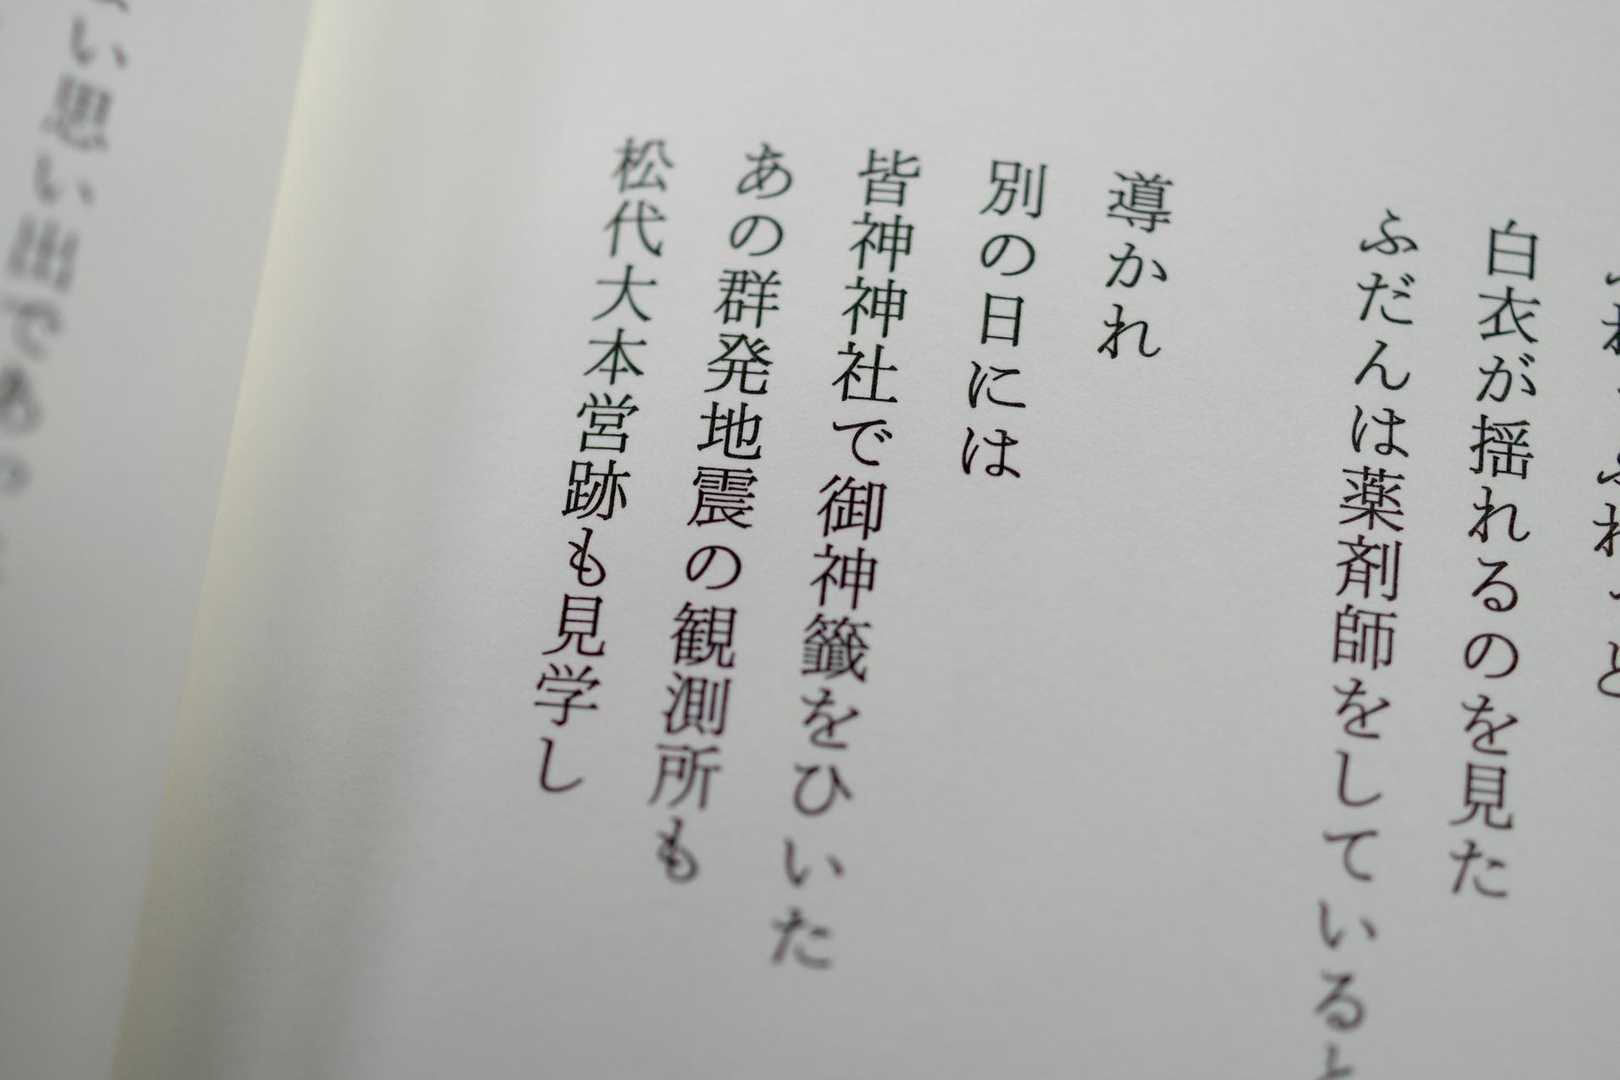 白衣が揺れるのを見た
ふだんは薬剤師をしていると
導かれ
別の日には
皆神神社で御神籤をひいた
あの群発地震の観測所も
松代大本営跡も見学し
い思い出であっ